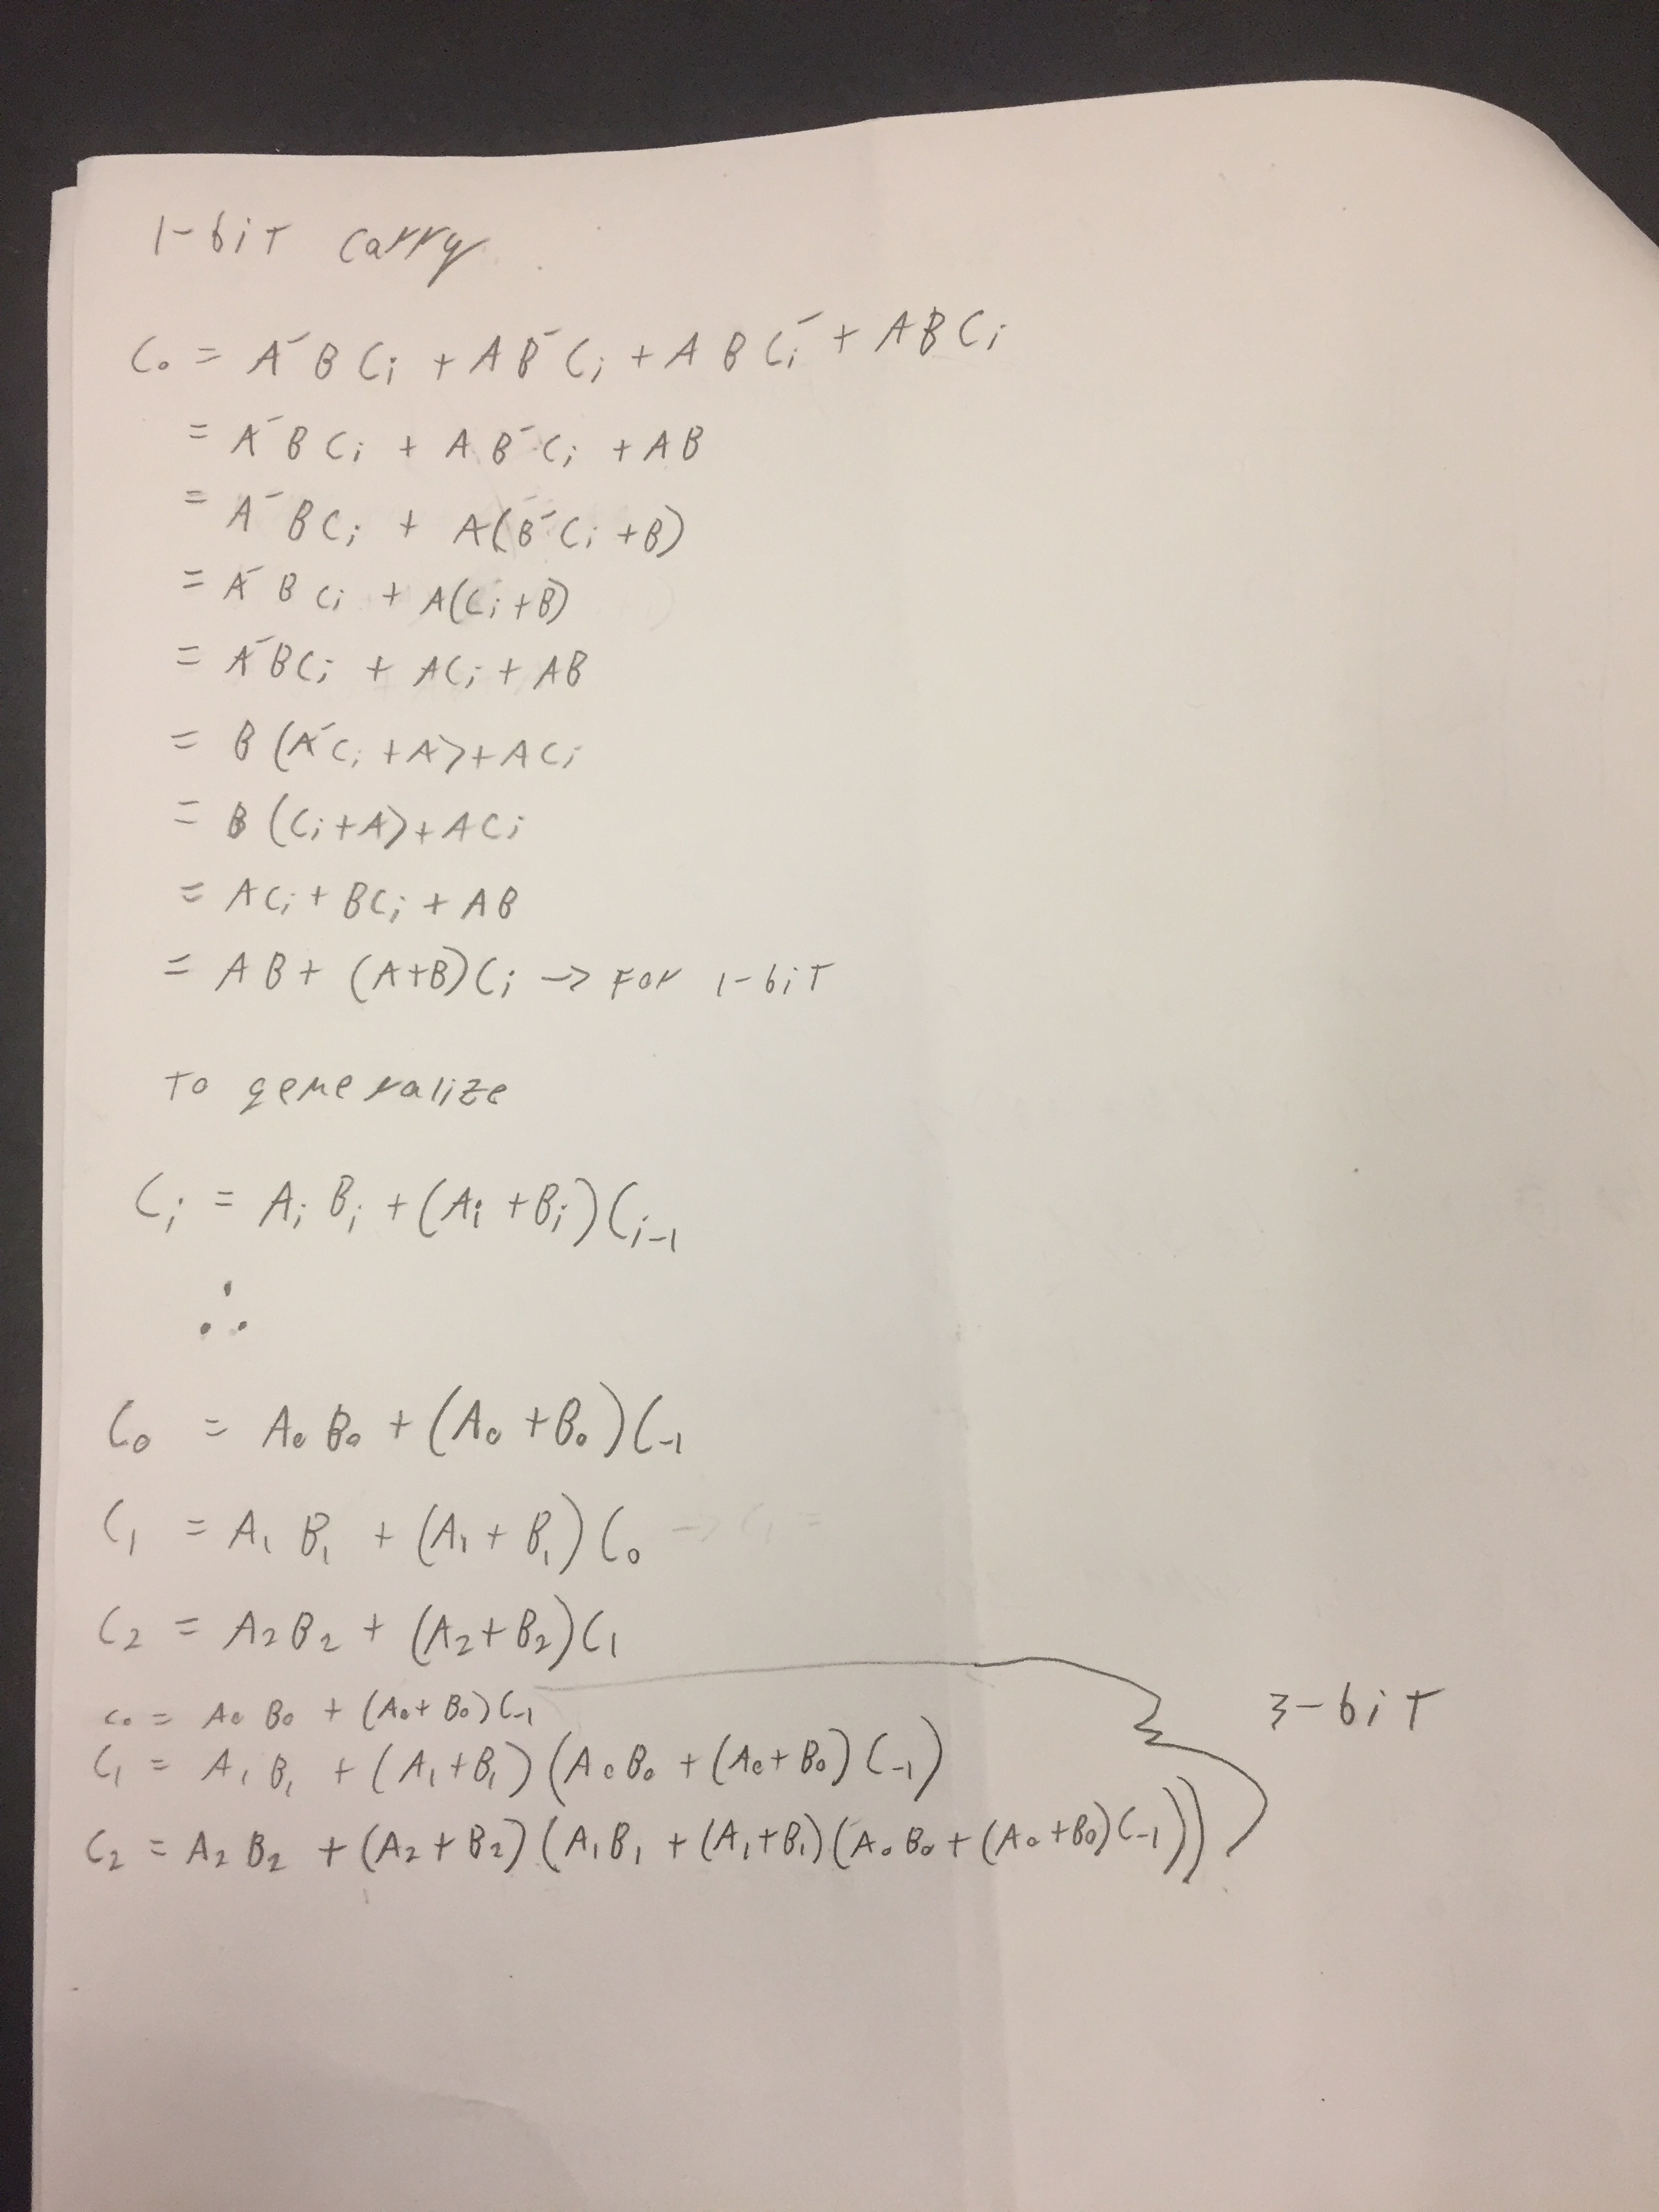 1-bit carry
C₀ = A⁻ B Cᵢ + A B⁻ Cᵢ + A B Cᵢ⁻ + A B Cᵢ
= A⁻ B Cᵢ + A B⁻ Cᵢ + A B
= A⁻ B Cᵢ + A(B⁻ Cᵢ + B)
= A⁻ B Cᵢ + A(Cᵢ + B)
= A⁻ B Cᵢ + A Cᵢ + A B
= B (A⁻ Cᵢ + A) + A Cᵢ
= B (Cᵢ + A) + A Cᵢ
= A Cᵢ + B Cᵢ + A B
= A B + (A+B) Cᵢ -> For 1-bit
to generalize
Cᵢ = Aᵢ Bᵢ + (Aᵢ + Bᵢ) Cᵢ₋₁
∴
C₀ = A₀ B₀ + (A₀ + B₀) C₋₁
C₁ = A₁ B₁ + (A₁ + B₁) C₀
C₂ = A₂ B₂ + (A₂ + B₂) C₁
C₀ = A₀ B₀ + (A₀ + B₀) C₋₁
C₁ = A₁ B₁ + (A₁ + B₁) (A₀ B₀ + (A₀ + B₀) C₋₁)
C₂ = A₂ B₂ + (A₂ + B₂) (A₁ B₁ + (A₁ + B₁) (A₀ B₀ + (A₀ + B₀) C₋₁))
3-bit